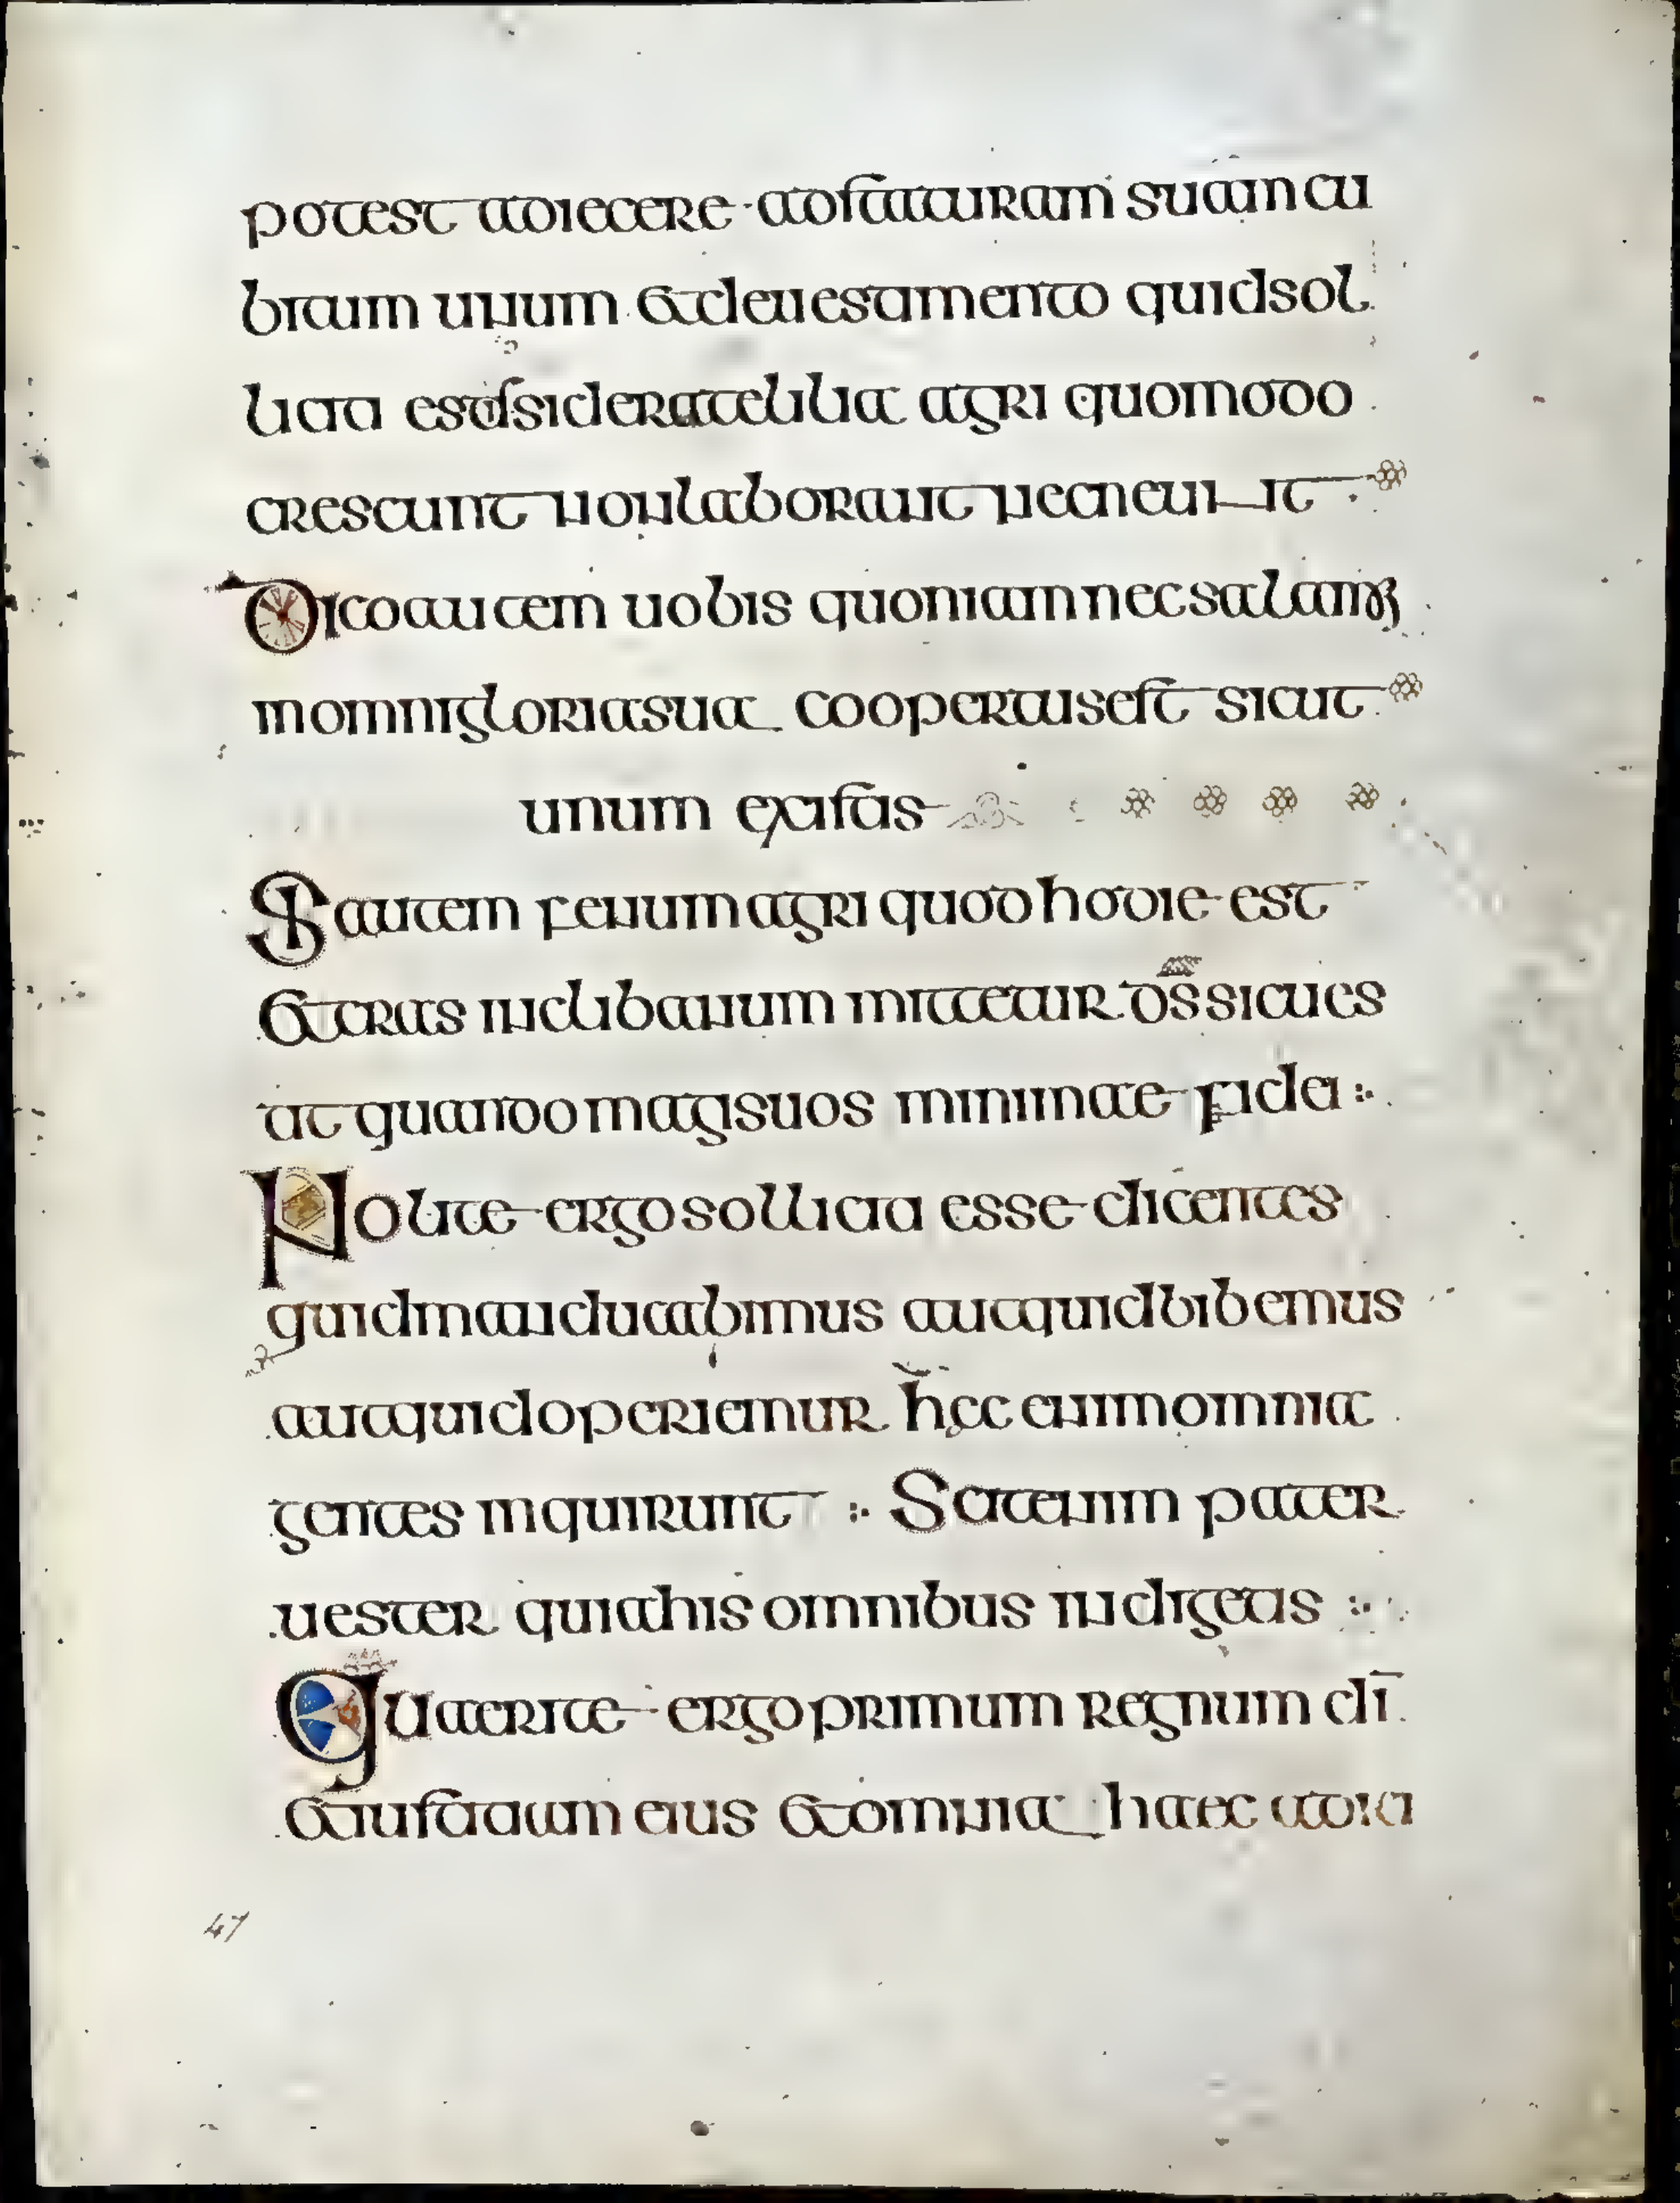 potest adiecere ad staturam suam cu
bitum unum et deuestimento quid sol
liciti estis siderate lilia agri quomodo
crescunt non laborant nec neunt
Dico autem uobis quoniam nec salamo
in omni gloria sua coopertus est sicut
unum ex istis
Si autem fenum agri quod hodie est
et cras in clibanum mittetur d̄s̄ sic ues
tit quando magis uos minimae fidei
Nolite ergo solliciti esse dicentes
quid manducabimus aut quid bibemus
aut quid operiemur h̄ęc enim omnia
gentes inquirunt Scit enim pater
uester quia his omnibus indigetis
Quaerite ergo primum regnum dī
et iustitiam eius et omnia haec adici
47